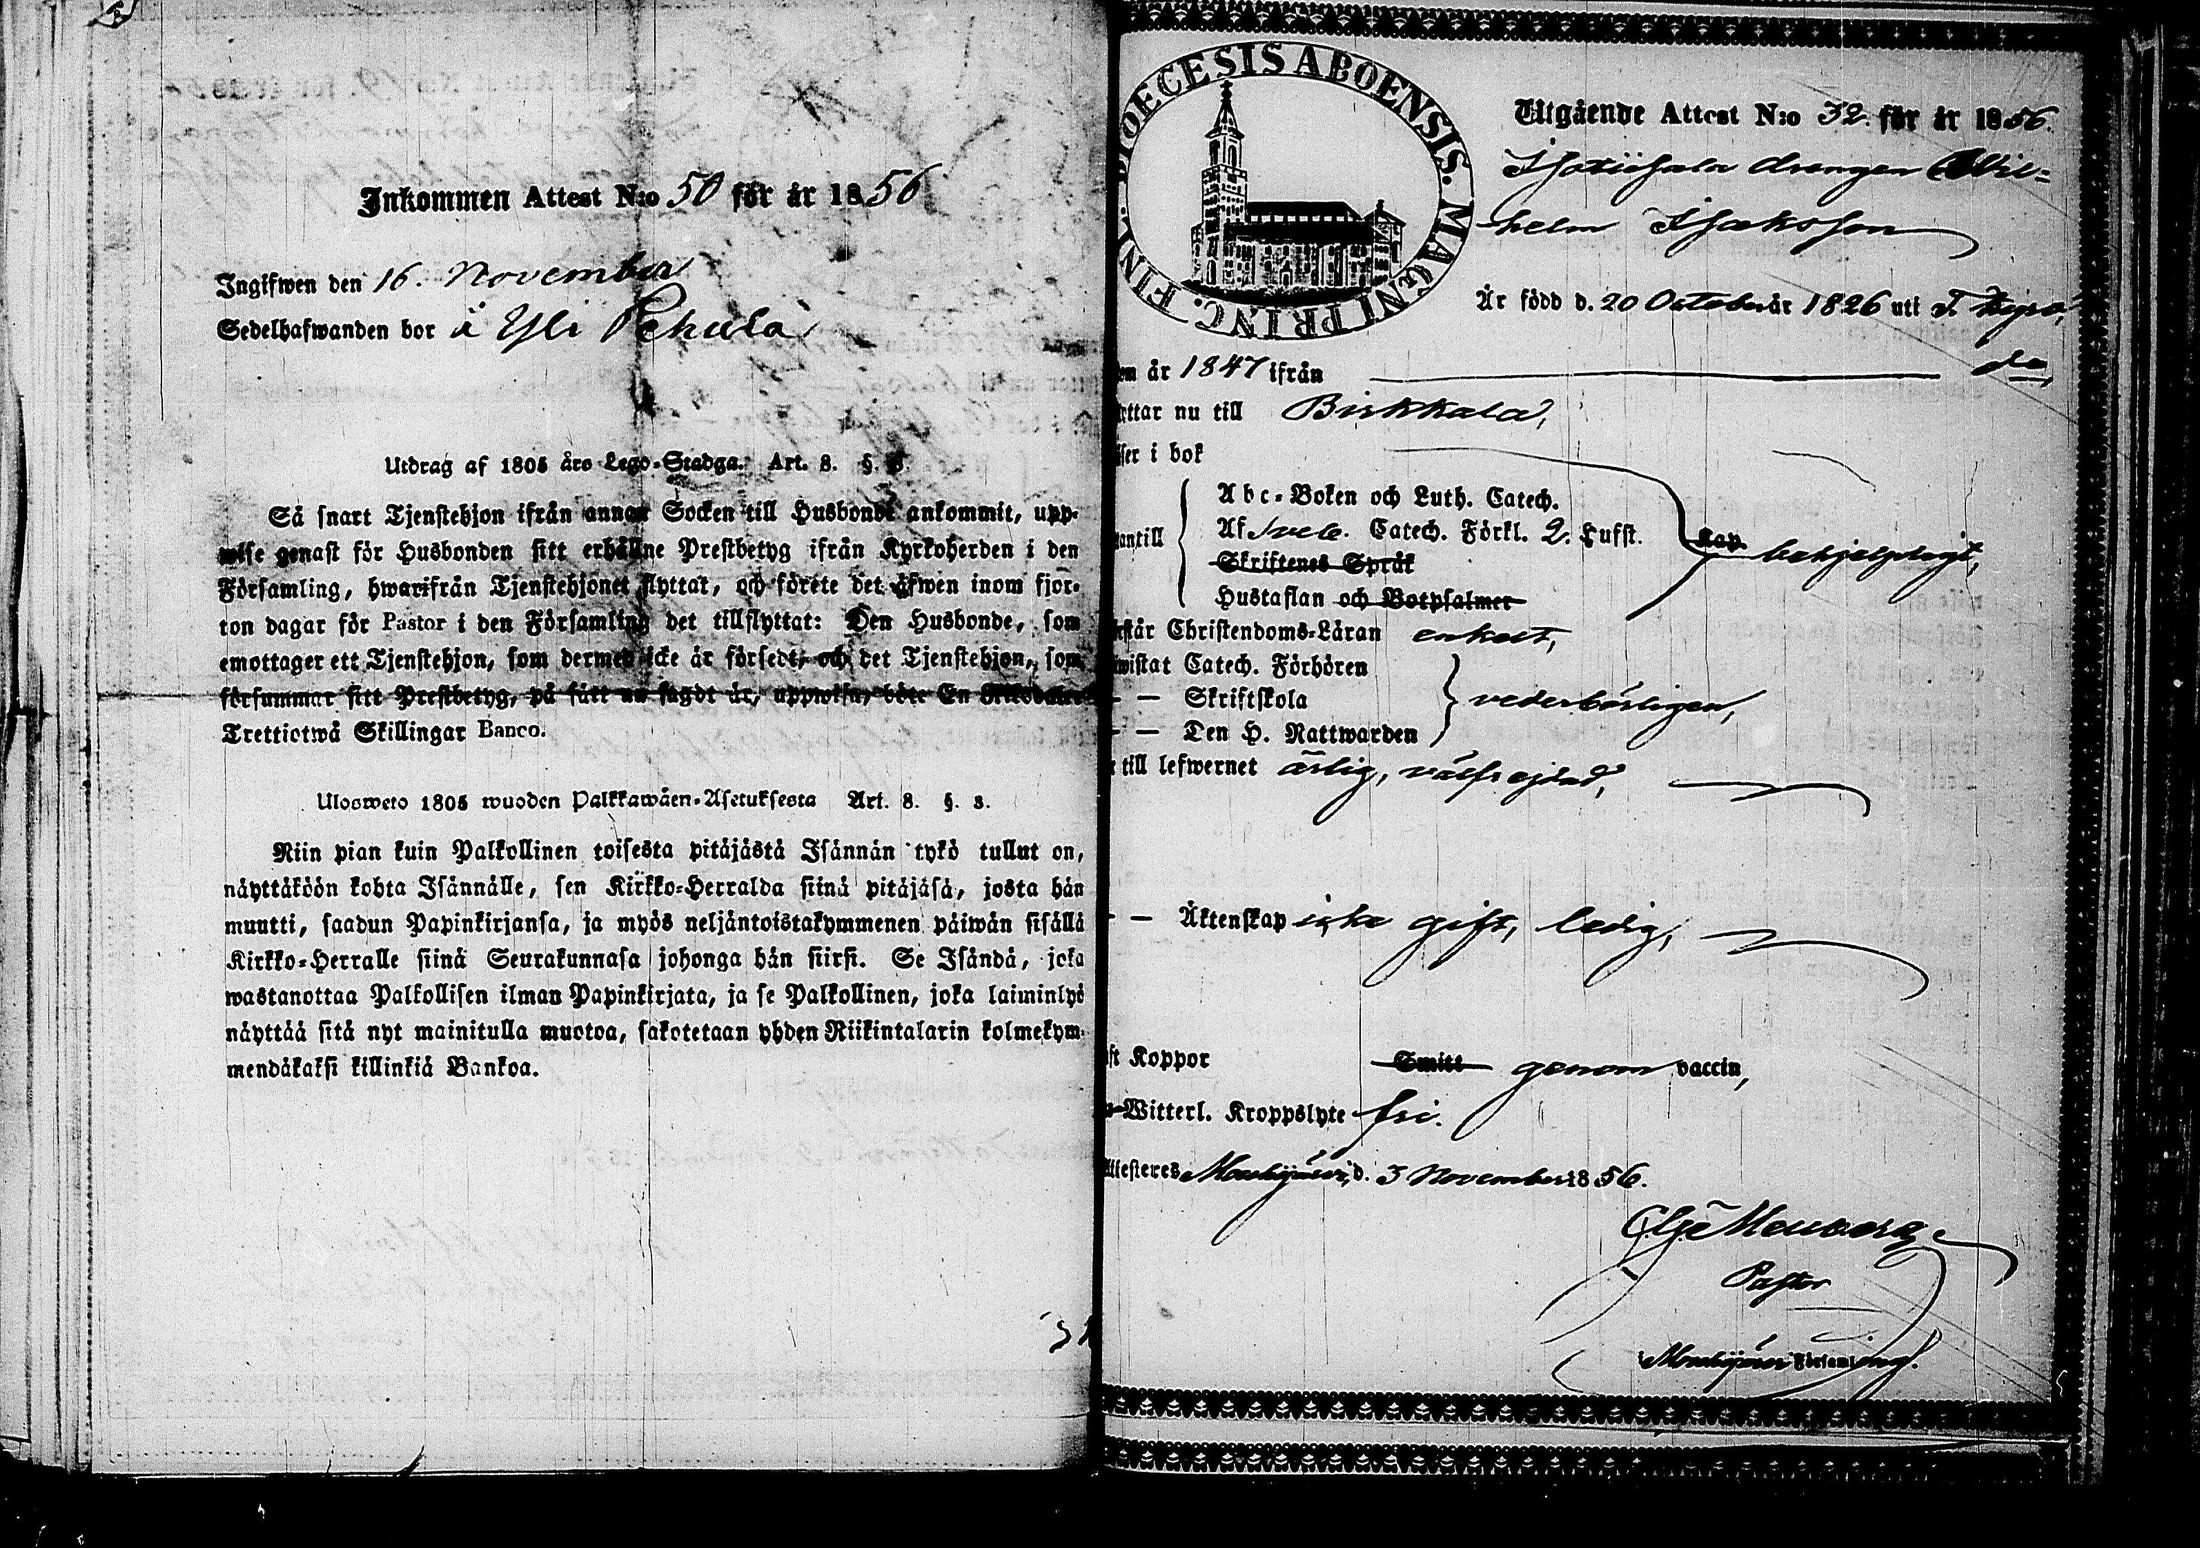 Inkommen Attest N:o 50 för år 1856
Ingifwen den 16. November
Sedelhafwanden bor i Yli Pehula
Utdrag af 1805 års Lego-Stadga. Art. 8. §.
Så snart Tjenstehjon ifrån annan Socken till Husbonde ankommit, upp-
wise genast för Husbonden sitt erhållne Prestbetyg ifrån Kyrkoherden i den
Församling, hwarifrån Tjenstehjonet flyttat, och förete det äfwen inom fjor-
ton dagar för Pastor i den Församling det tillflyttat: Den Husbonde, som
emottager ett Tjenstehjon, som dermed icke är försedt, och det Tjenstehjon, som
försummar sitt Prestbetyg, på sätt nu sagdt är, uppwisa, böte En Riksdaler
Trettiotwå Skillingar Banco.
Ulosweto 1805 wuoden Palkkawäen-Asetuksesta Art. 8. §. 3.
Niin pian kuin Palkollinen toisesta pitäjästä Isännän tykö tullut on,
näyttäköön kohta Isännälle, sen Kirkko-Herralda siinä pitäjäsä, josta hän
muutti, saadun Papinkirjansa, ja myös neljäntoistakymmenen päiwän sisällä
Kirkko-Herralle siinä Seurakunnasa johonga hän siirsi. Se Isändä, joka
wastanottaa Palkollisen ilman Papinkirjata, ja se Palkollinen, joka laiminlyö
näyttää sitä nyt mainitulla muotoa, sakotetaan yhden Riikintalarin kolmekym-
mendäkaksi killinkiä Bankoa.
DIOECESIS ABOENSIS. MAGNI PRINC. FINL.
Utgående Attest N:o 32 för år 1856.
drengen Wil-
helm Isaksson
Är född d. 20 October år 1826 uti T. Kyro,
em år 1847 ifrån do
ttar nu till Birkkala,
ser i bok
Abc-Boken och Luth. Catech.
antill Af Sveb. Catech. Förkl. 2. Hufst. Kap. behjelpligt,
Skriftenes Språk
Hustaflan och Botpsalmer
står Christendoms-Läran enkelt,
wistat Catech. Förhören
— — Skriftskola vederbörligen,
— — Den H. Nattwarden
till lefwernet ärlig, välfrejdad,
— — Äktenskap icke gift, ledig,
ft Koppor Smitt genom vaccin,
Witterl. Kroppslyte fri.
Attesteres Mouhijärvi, d. 3 November 1856.
Pastor
i Mouhijärvi Församling.